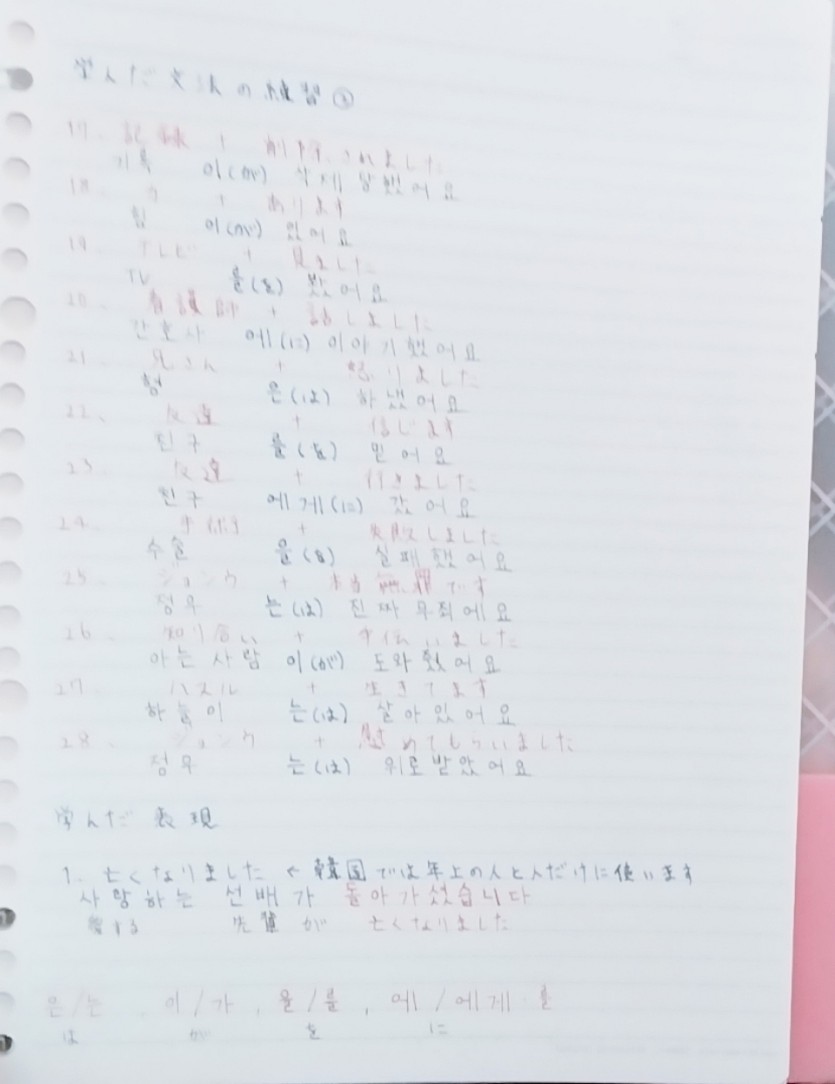 学んだ文法の練習②
17. 記録 + 削除されました
기록 이(が) 삭제 당했어요
18. 力 + あります
힘 이(が) 있어요
19. テレビ + 見ました
TV 를(を) 봤어요
20. 看護師 + 話しました
간호사 에(に) 이야기했어요
21. 兄さん + 怒りました
형 은(は) 하냈어요
22. 友達 + 信じます
친구 를(を) 믿어요
23. 友達 + 行きました
친구 에게(に) 갔어요
24. 手術 + 失敗しました
수술 을(を) 실패했어요
25. ジョンウ + 本当無罪です
정우 는(は) 진짜 무죄에요
26. 知り合い + 手伝いました
아는 사람 이(が) 도와줬어요
27. ハヌル + 生きてます
하늘이 는(は) 살아있어요
28. ジョンウ + 慰めてもらいました
정우 는(は) 위로 받았어요
学んだ表現
1. 亡くなりました ← 韓国では年上の人と人だけに使います
사랑하는 선배가 돌아가셨습니다
愛する 先輩 が 亡くなりました
은/는 , 이/가 , 을/를 , 에/에게 를
は が を に